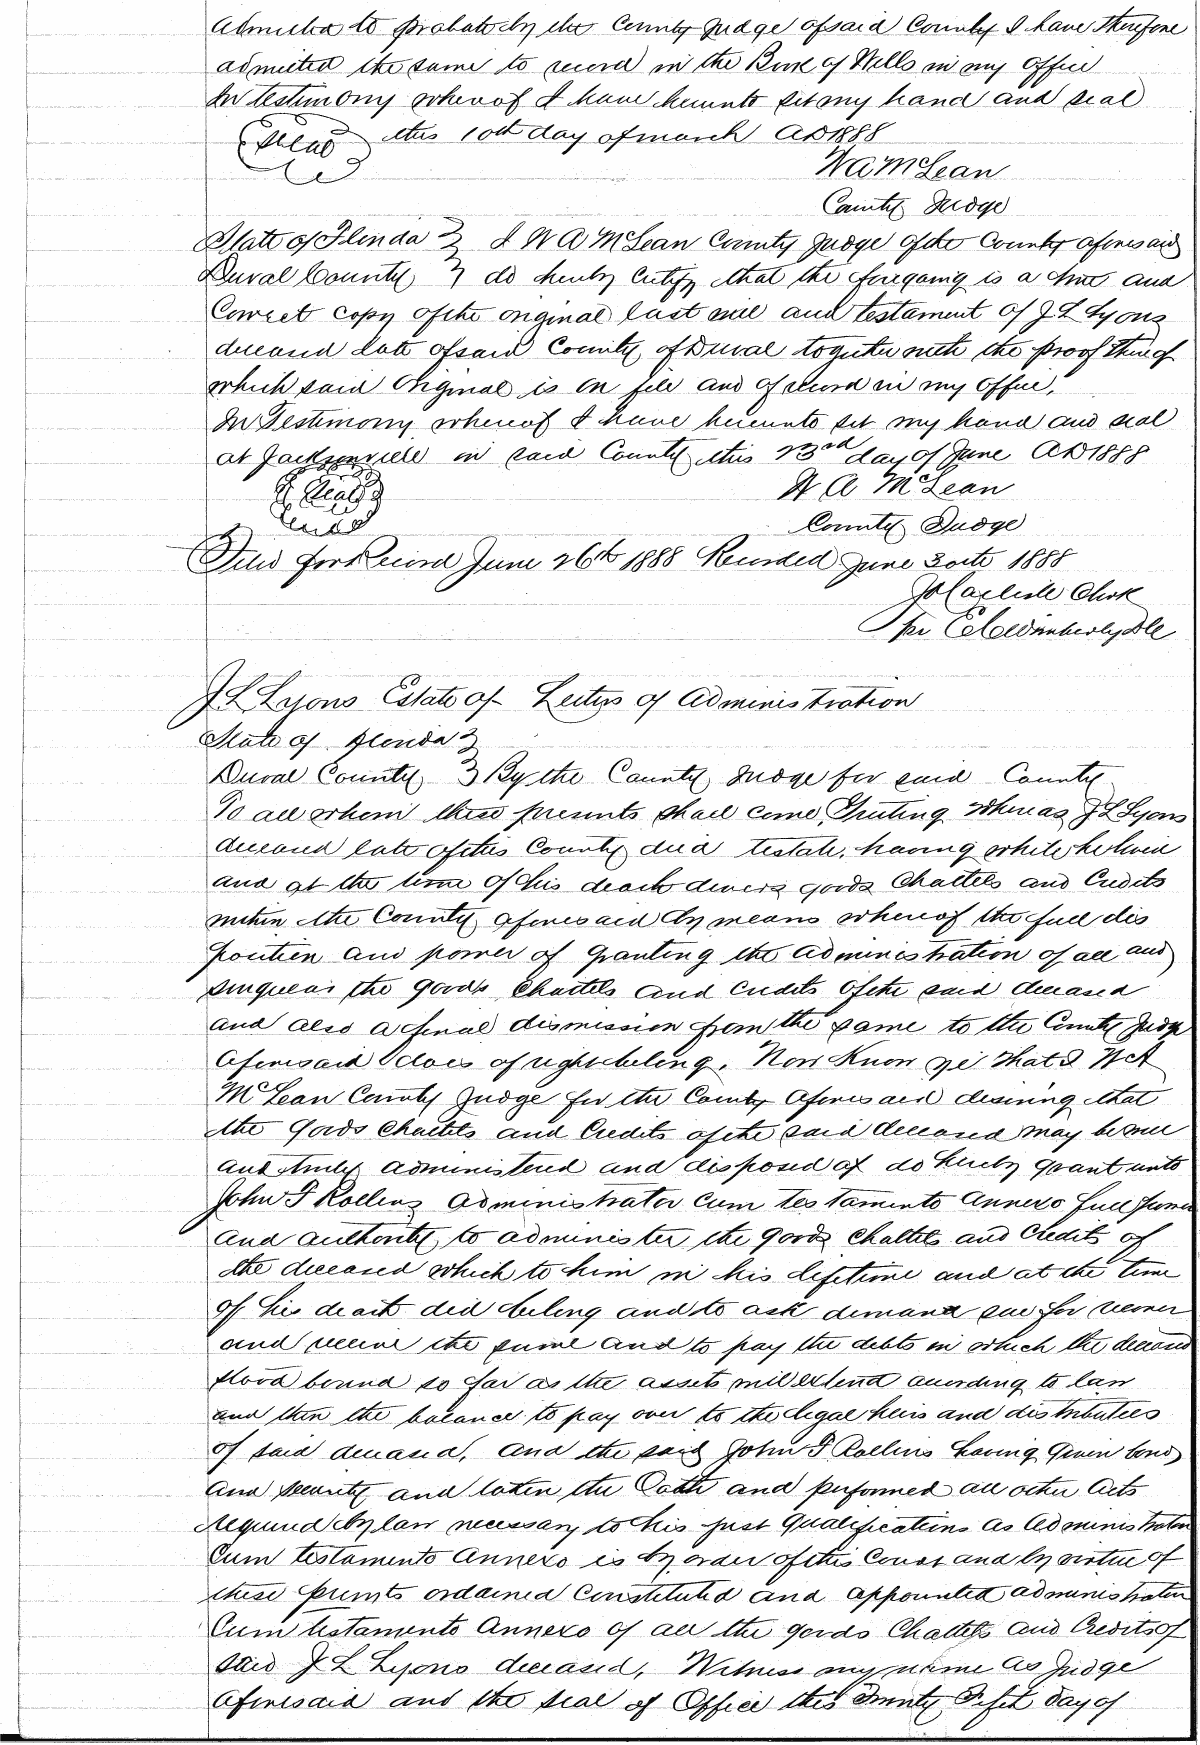 admitted to probate by the County Judge of said County I have therefore
admitted the same to record in the Book of Wills in my office
In testimony whereof I have hereunto set my hand and seal
Seal this 10th day of march AD 1888
W A McLean
County Judge
State of Florida } I W A McLean County Judge of the County aforesaid
Duval County } do hereby certify that the foregoing is a true and
Correct copy of the original last will and testament of J L Lyons
deceased late of said County of Duval together with the proof thereof
which said Original is on file and of record in my office,
In Testimony whereof I have hereunto set my hand and seal
at Jacksonville in said County this 23rd day of June AD 1888
Seal
W A McLean
County Judge
Filed for Record June 26th 1888 Recorded June 30th 1888
Clerk
Per
J L Lyons Estate of Letters of Administration
State of Florida }
Duval County } By the County Judge for said County
To all whom these presents shall come Greeting Whereas J L Lyons
deceased late of this County died testate, having while he lived
and at the time of his death divers goods Chattels and Credits
within the County aforesaid by means whereof the full dis
position and power of granting the administration of all and
singular the goods Chattels and Credits of the said deceased
and also a final dismission from the same to the County Judge
aforesaid does of right belong. Now Know ye that I W A
McLean County Judge for the County aforesaid desiring that
the goods Chattels and Credits of the said deceased may be well
and truly administered and disposed of do hereby grant unto
John F Rollins Administrator Cum testamento Annexo full power
and authority to administer the goods Chattels and Credits of
the deceased which to him in his lifetime and at the time
of his death did belong and to ask demand sue for recover
and receive the same and to pay the debts in which the deceased
stood bound so far as the assets will extend according to law
and then the balance to pay over to the legal heirs and distributees
of said deceased, and the said John F Rollins having given bond
and security and taken the Oath and performed all other Acts
required by law necessary to his just Qualifications as Administrator
Cum testamento Annexo is by order of this Court and by virtue of
these presents ordained Constituted and appointed administrator
Cum testamento Annexo of all the goods Chattels and Credits of
said J L Lyons deceased, Witness my name as Judge
aforesaid and the seal of Office this Twenty First day of